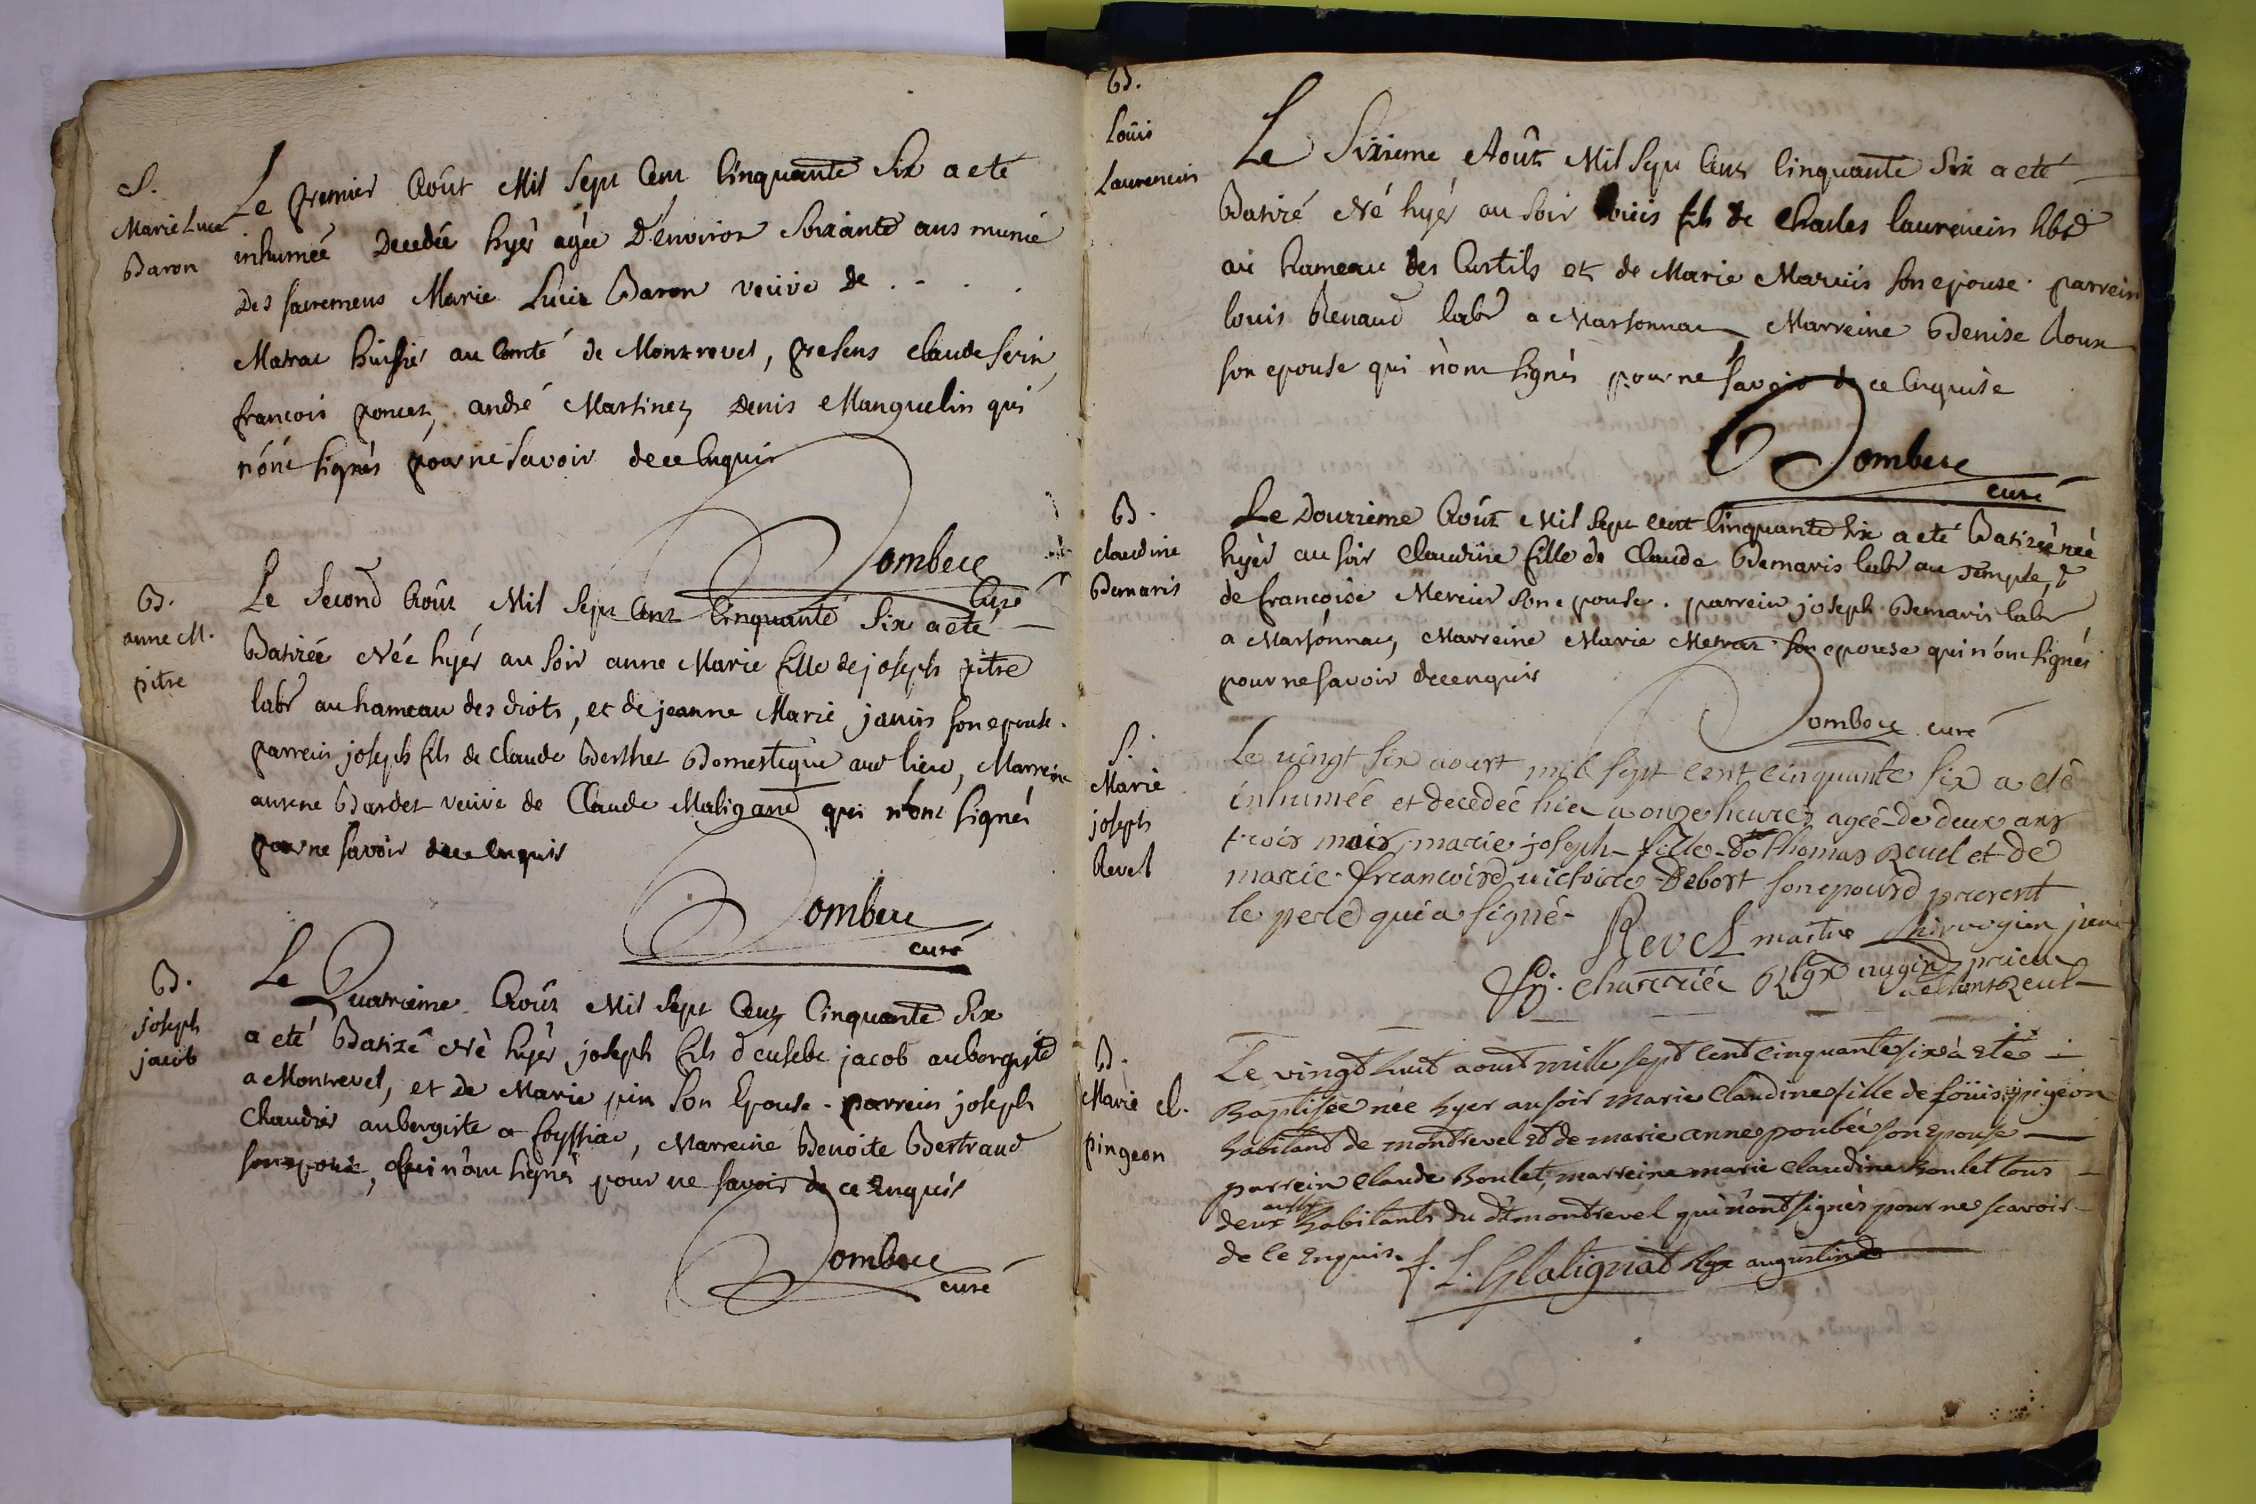 S.
Marie Luce
Baron
Le premier Août Mil sept Cent Cinquante Six a eté
inhumée Decedée hyèr agée D'environ Soixante ans munie
Des sacremens Marie Lucie Baron veuve de . . . .
Matrac huissier au Comté de Montrevel, presens claude serin
francois poncet, andré Martinez, Denis Manguelin qui
n'ont signés pour ne Savoir de ce Enquis
Dombere
Curé
B.
anne M.
pitre
Le Second Août Mil Sept Cent Cinquante Six a eté
Batizée Née hyér au Soir anne Marie fille de joseph pitre
labr au hameau des diots, et de jeanne Marie janin son epouse.
parrein joseph fils de Claude Berthet Domestique au lieu, Marreine
Bardet veuve de Claude Maligand qui n'ont signés
pour ne savoir de ce Enquis
Dombere
curé
B.
joseph
jacob
Le Quatrieme Août Mil Sept Cent Cinquante Six
a eté Batizé Né hyèr joseph fils d'eusebe jacob aubergiste
a Montrevel, et de Marie pin Son Epouse. parrein joseph
Chaudier aubergiste a foyssiac, Marreine Benoite Bertrand
son epouse, qui n'ont signés pour ne savoir de ce Enquis
Dombere
curé
B.
Loüis
Laurencin
Le Sixieme Août Mil Sept Cent Cinquante Six a eté
Batizé Né hyér au Soir Loüis fils de Charles laurencin
au hameau des Curtils et de Marie Maruis son epouse. parrein
louis Renaud labr a Marsonnac Marreine Denise Roux
son epouse qui n'ont signés pour ne Savoir de ce Enquise
Dombere
curé
B.
claudine
Demaris
Le Douzieme Août Mil Sept Cent Cinquante Six a eté Batizée née
hyèr au soir Claudine fille de Claude Demaris labr au Temple, &
de francoise Mercier Son epouse. parrein joseph Demaris labr
a Marsonnac, Marreine Marie Metraz son epouse qui n'ont signés
pour ne savoir de ce enquis
Dombere curé
S.
Marie
joseph
Revel
Le vingt six aoust mil sept cent cinquante six a eté
inhumée et decedée hier a onze heures agée de deux ans
trois mois marie joseph fille de thomas Revel et de
marie francoise victoire Debost son epouse present
le pere qui a signé
Revel maitre chirurgien juré
fr. charcriér Rlgx augin prieur
de montrevel
B.
Marie cl.
pingeon
Le vingt huit aoust mille sept cent cinquante six à eté
Baptisée née hyer au soir marie Claudine fille de Loüis pigeon
habitant de montrevel et de marie anne poubée son Epouse
parrein Claude Boulet, marreine marie Claudine Boulet tous
aussy
deux habitants du dt montrevel qui n'ont signés pour ne scavoir
de ce Enquis. f. L. Glatignat Rgx augustin